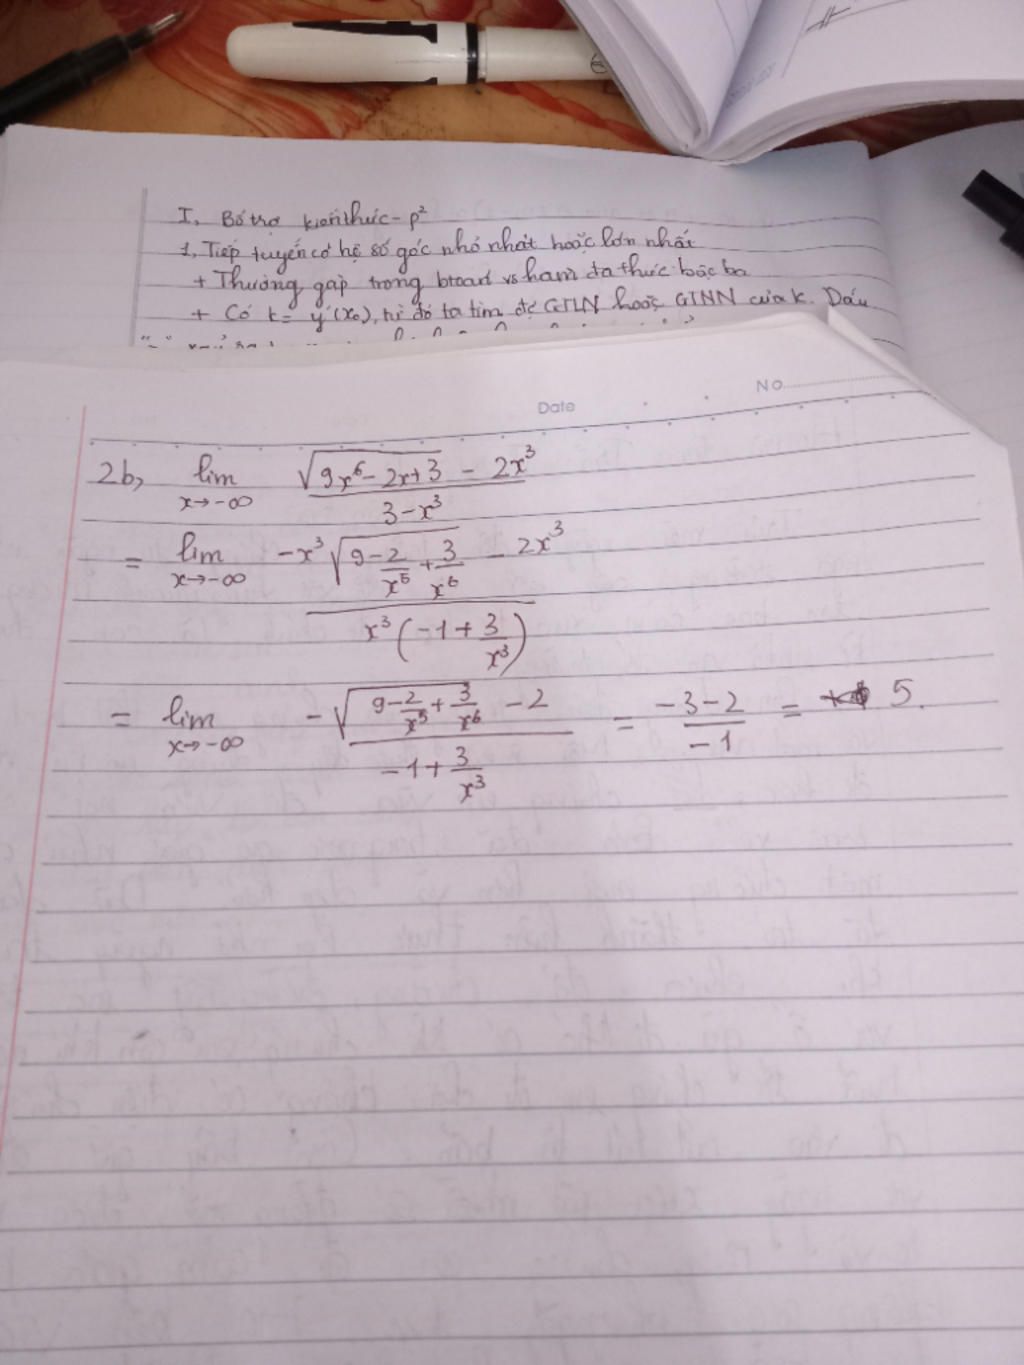 I, Bổ trợ kiến thức - p²
1, Tiếp tuyến có hệ số góc nhỏ nhất hoặc lớn nhất
+ Thường gặp trong btoán vs hàm đa thức bậc ba
+ Có k = y'(x₀), từ đó ta tìm đc GTLN hoặc GTNN của k. Dấu
Date
No.
2b, lim x→-∞ (√(9x⁶ - 2x + 3) - 2x³) / (3 - x³)
= lim x→-∞ (-x³√(9 - 2/x⁵ + 3/x⁶) - 2x³) / (x³(-1 + 3/x³))
= lim x→-∞ (-√(9 - 2/x⁵ + 3/x⁶) - 2) / (-1 + 3/x³) = (-3 - 2) / (-1) = 5.